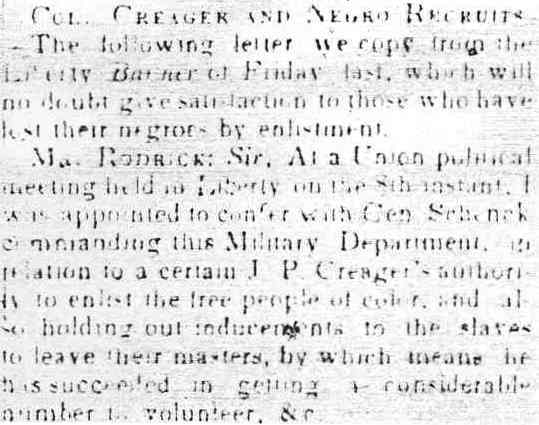 COL. CREAGER AND NEGRO RECRUITS
—The following letter we copy from the
Liberty Banner of Friday last, which will
no doubt give satisfaction to those who have
lost their negroes by enlistment.
MR. RODRICK: Sir, At a Union political
meeting held in Liberty on the 8th instant, I
was appointed to confer with Gen Schenck
commanding this Military Department, in
relation to a certain J. P. Creager's authori-
ty to enlist the free people of color, and al-
so holding out inducements to the slaves
to leave their masters, by which means he
has succeeded in getting a considerable
number to volunteer, &c.